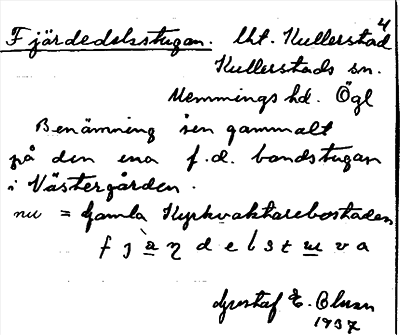 4
Fjärdedelsstugan. Lht. Kullerstad
Kullerstads sn.
Memmings hd. Ögl
Benämning sen gammalt
på den ena f.d. bondstugan
i Västergården.
nu = Gamla Kyrkvaktarebostaden
Gustaf E. Olsson
1937